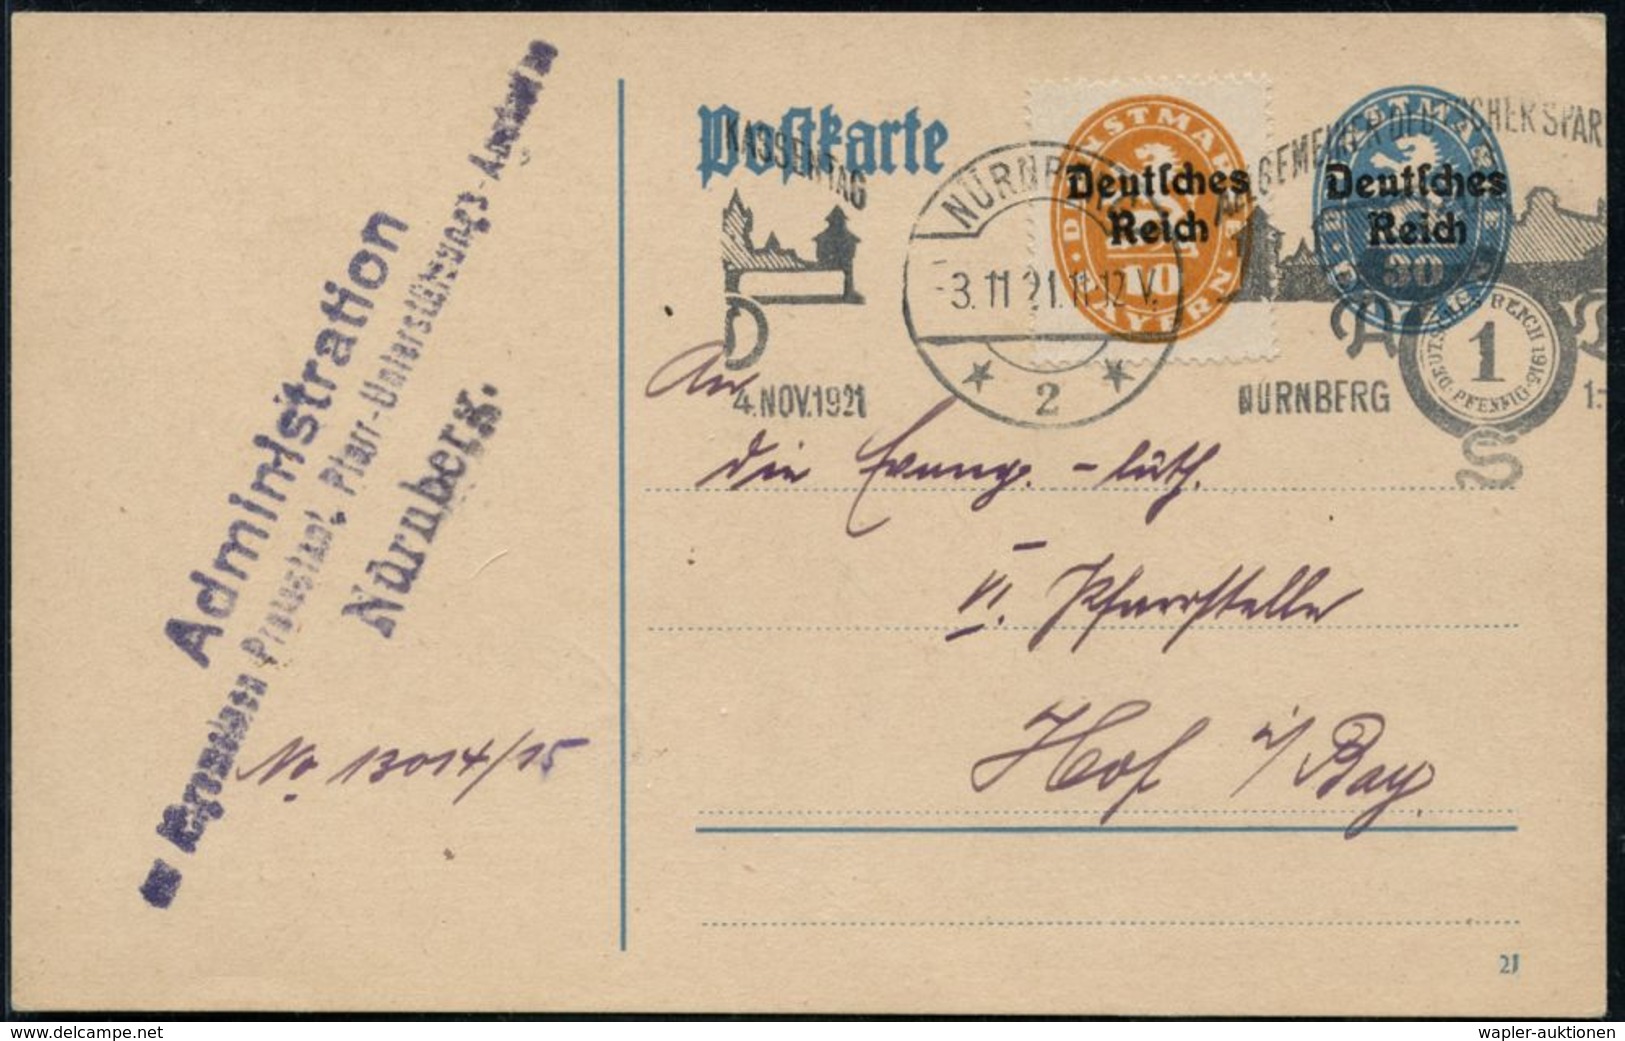 Postkarte
KASSENTAG
4. NOV. 1921
NÜRNBERG
-3.11 21.11-12 V.
2
DIENSTMARKE
Deutsches
Reich
40
BAYERN
ALLGEMEINER DEUTSCHER SPAR
Deutsches
Reich
30
NÜRNBERG
DEUTSCHES REICH 1916
1
PFENNIG
1.-
A
D
S
An
die Evang. - luth.
VI. Pfarrstelle
Hof i/Bay
Administration
Protestant. Pfarr-Unterstützungs-Anstalt
Nürnberg.
No. 13014/15
21
www.delcampe.net
wapler-auktionen